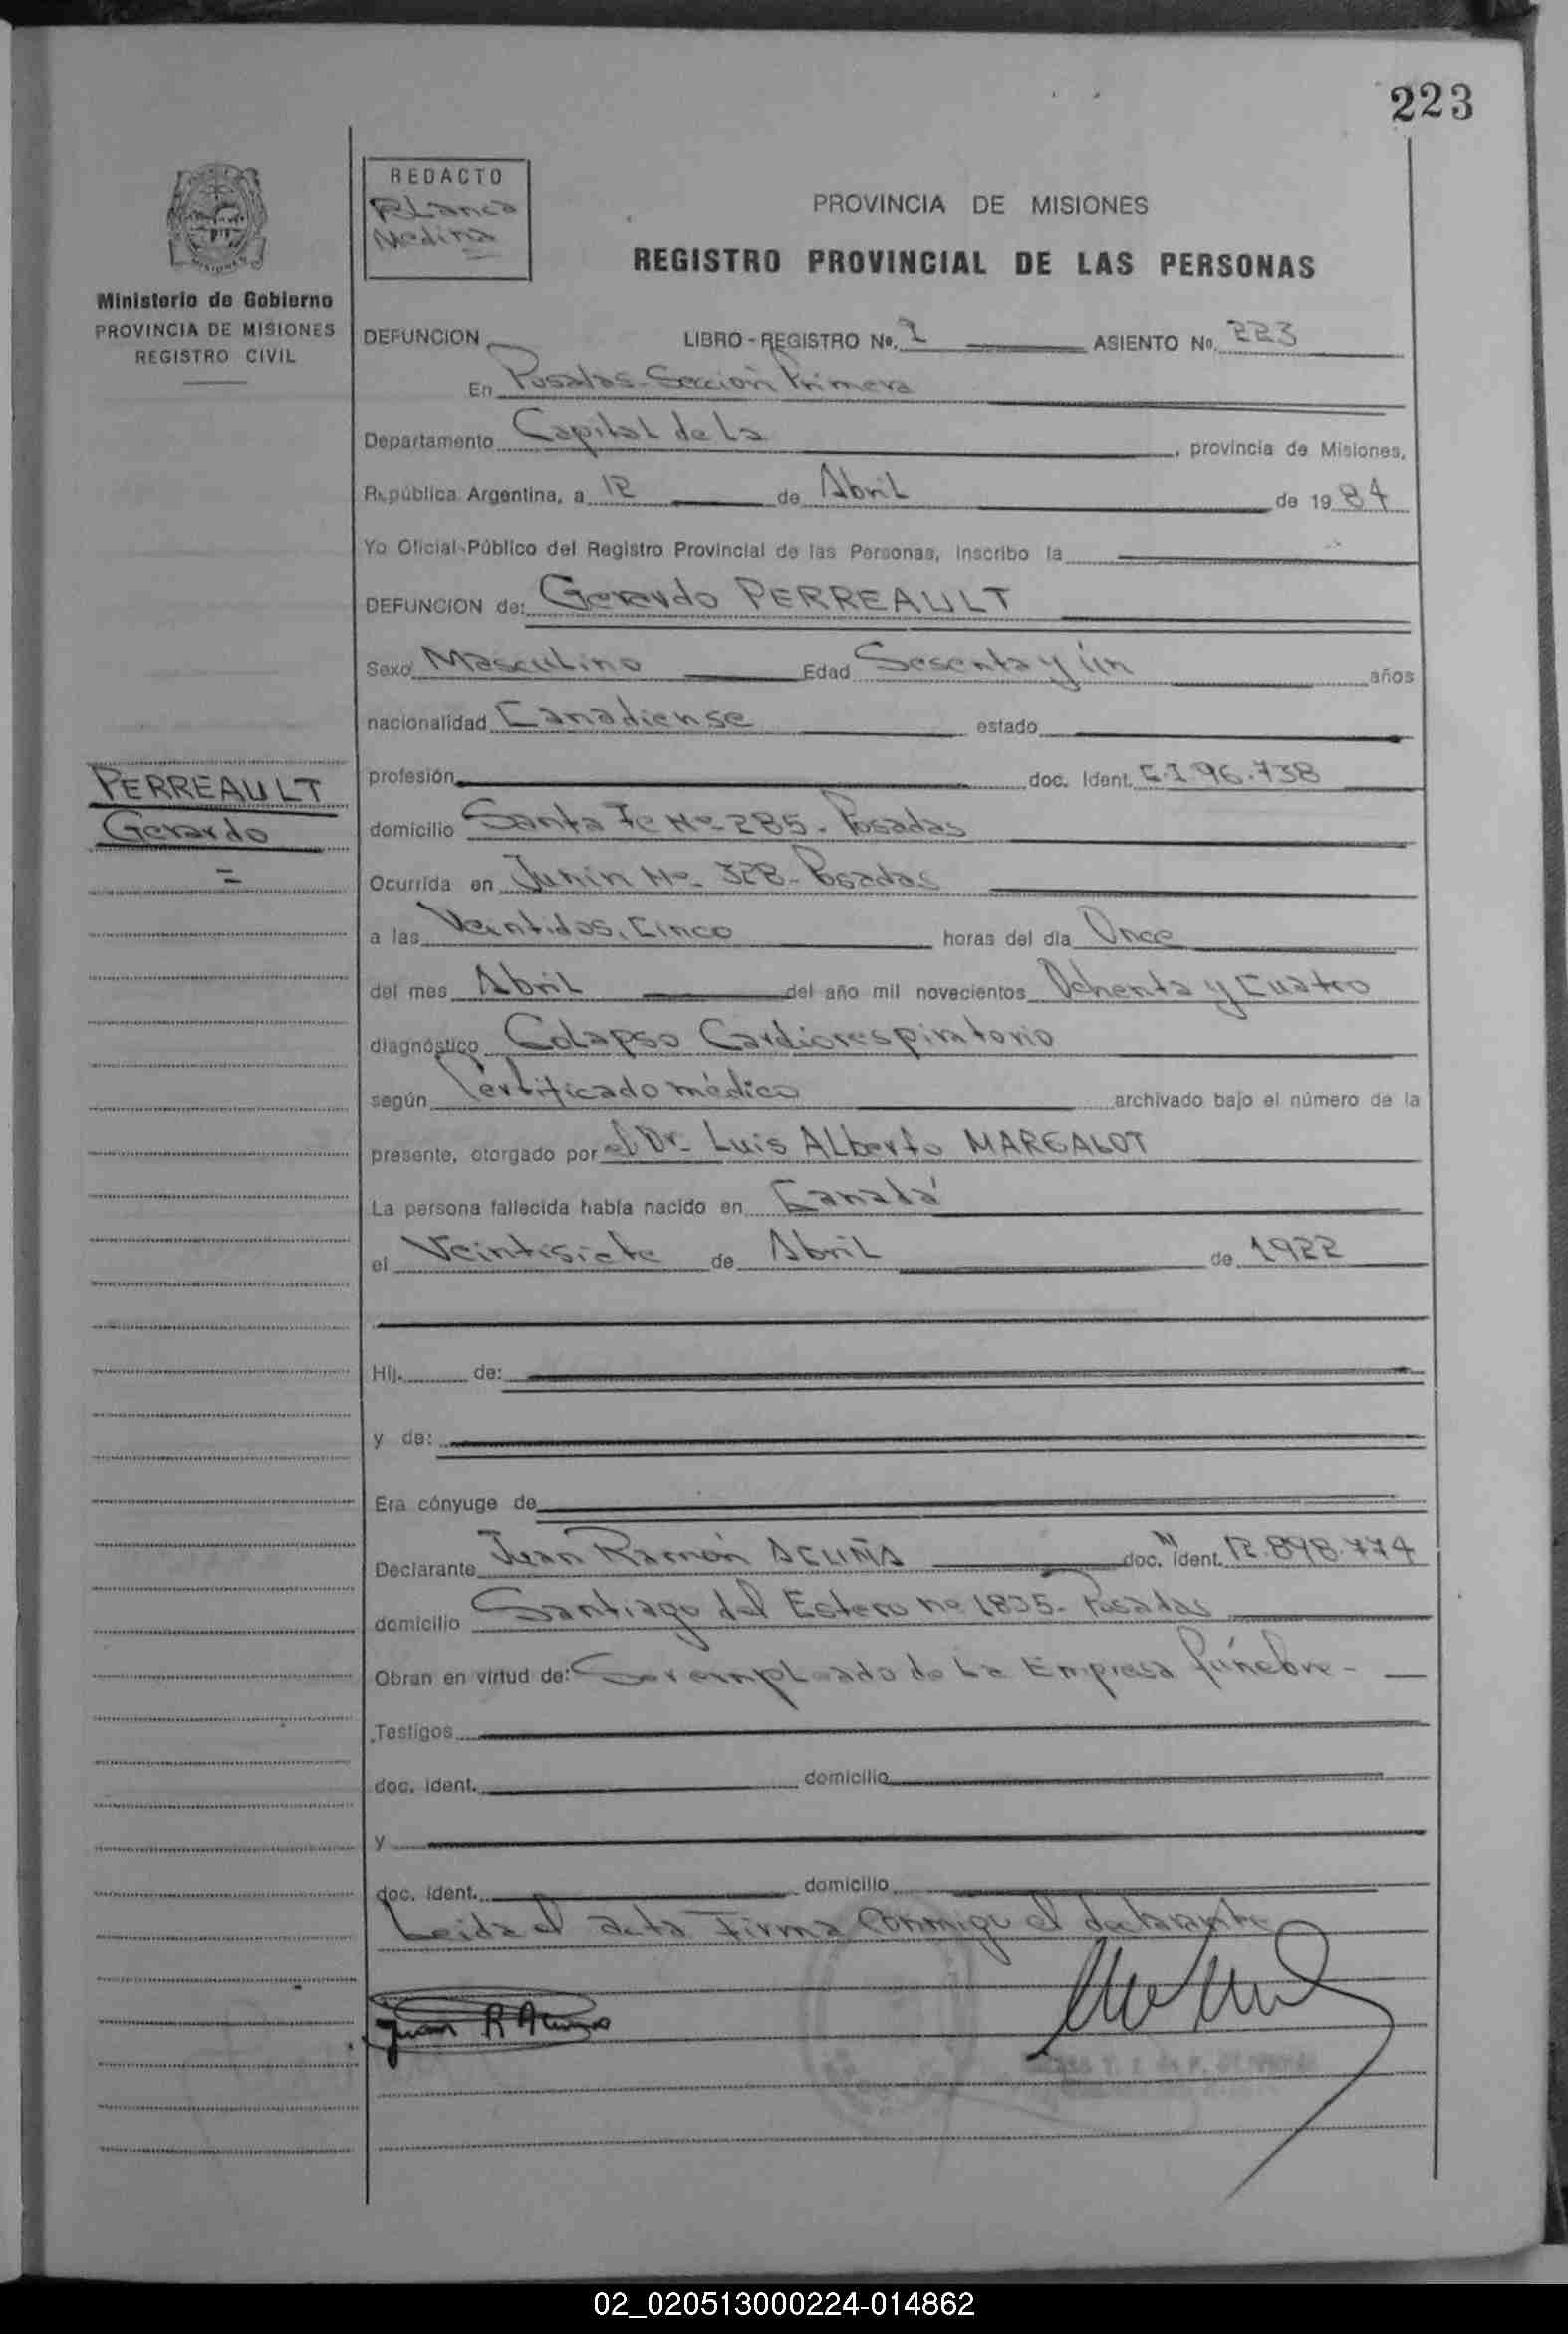 223
REDACTO
Blanca
Medina
MISIONES
Ministerio de Gobierno
PROVINCIA DE MISIONES
REGISTRO CIVIL
PROVINCIA DE MISIONES
REGISTRO PROVINCIAL DE LAS PERSONAS
DEFUNCION LIBRO - REGISTRO No. 1 ASIENTO No. 223
En Posadas - Sección Primera
Departamento Capital de la , provincia de Misiones,
República Argentina, a 12 de Abril de 1984
Yo Oficial Público del Registro Provincial de las Personas, inscribo la
DEFUNCION de: Gerardo PERREAULT
Sexo Masculino Edad Sesenta y ún años
nacionalidad Canadiense estado
PERREAULT
Gerardo
=
profesión doc. Ident. C.I. 96.738
domicilio Santa Fe No- 285 - Posadas
Ocurrida en Junin No- 328 - Posadas
a las Veintidos, Cinco horas del día Once
del mes Abril del año mil novecientos Ochenta y Cuatro
diagnóstico Colapso Cardiorespiratorio
según Certificado médico archivado bajo el número de la
presente, otorgado por el Dr. Luis Alberto MARGALOT
La persona fallecida había nacido en Canadá
el Veintisiete de Abril de 1922
Hij. de:
y de:
Era cónyuge de
Declarante Juan Ramón ACUÑA doc. Ident. N 12.898.774
domicilio Santiago del Estero no 1835 - Posadas
Obran en virtud de: Ser empleado de la Empresa fúnebre -
Testigos
doc. ident. domicilio
y
doc. ident. domicilio
Leida el acta Firma conmigo el declarante
Juan R Acuña
02_020513000224-014862